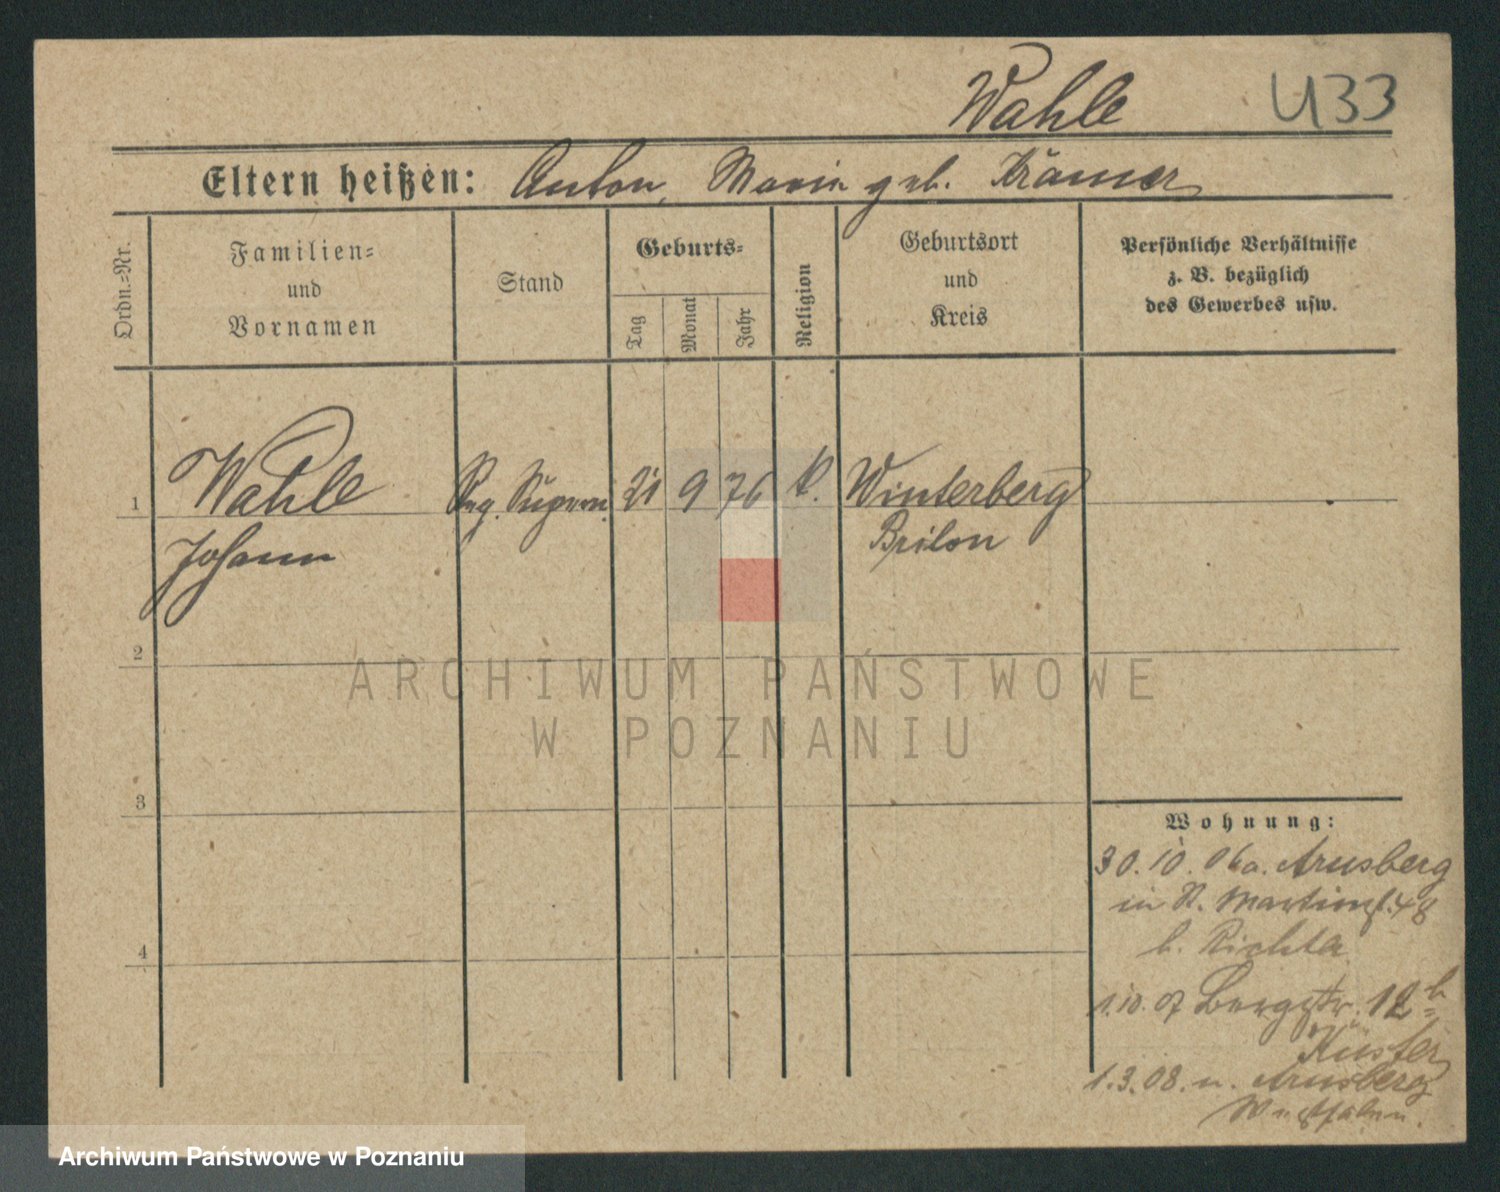 Wahle U33
Eltern heißen: Anton, Maria geb. Krämer
Ordn.=Nr.
Familien=
und
Vornamen
Stand
Geburts=
Tag
Monat
Jahr
Religion
Geburtsort
und
Kreis
Persönliche Verhältnisse
z. B. bezüglich
des Gewerbes usw.
1 Wahle Reg. Supern. 21 9 76 k. Winterberg
Johann Brilon
2
ARCHIWUM PAŃSTWOWE
W POZNANIU
3
Wohnung:
30.10.06 a. Arnsberg
in St. Martinstr. 48
b. Richter
4
1.10.07 Bergstr. 12b
Küster
1.3.08. n. Arnsberg
Westfalen.
Archiwum Państwowe w Poznaniu